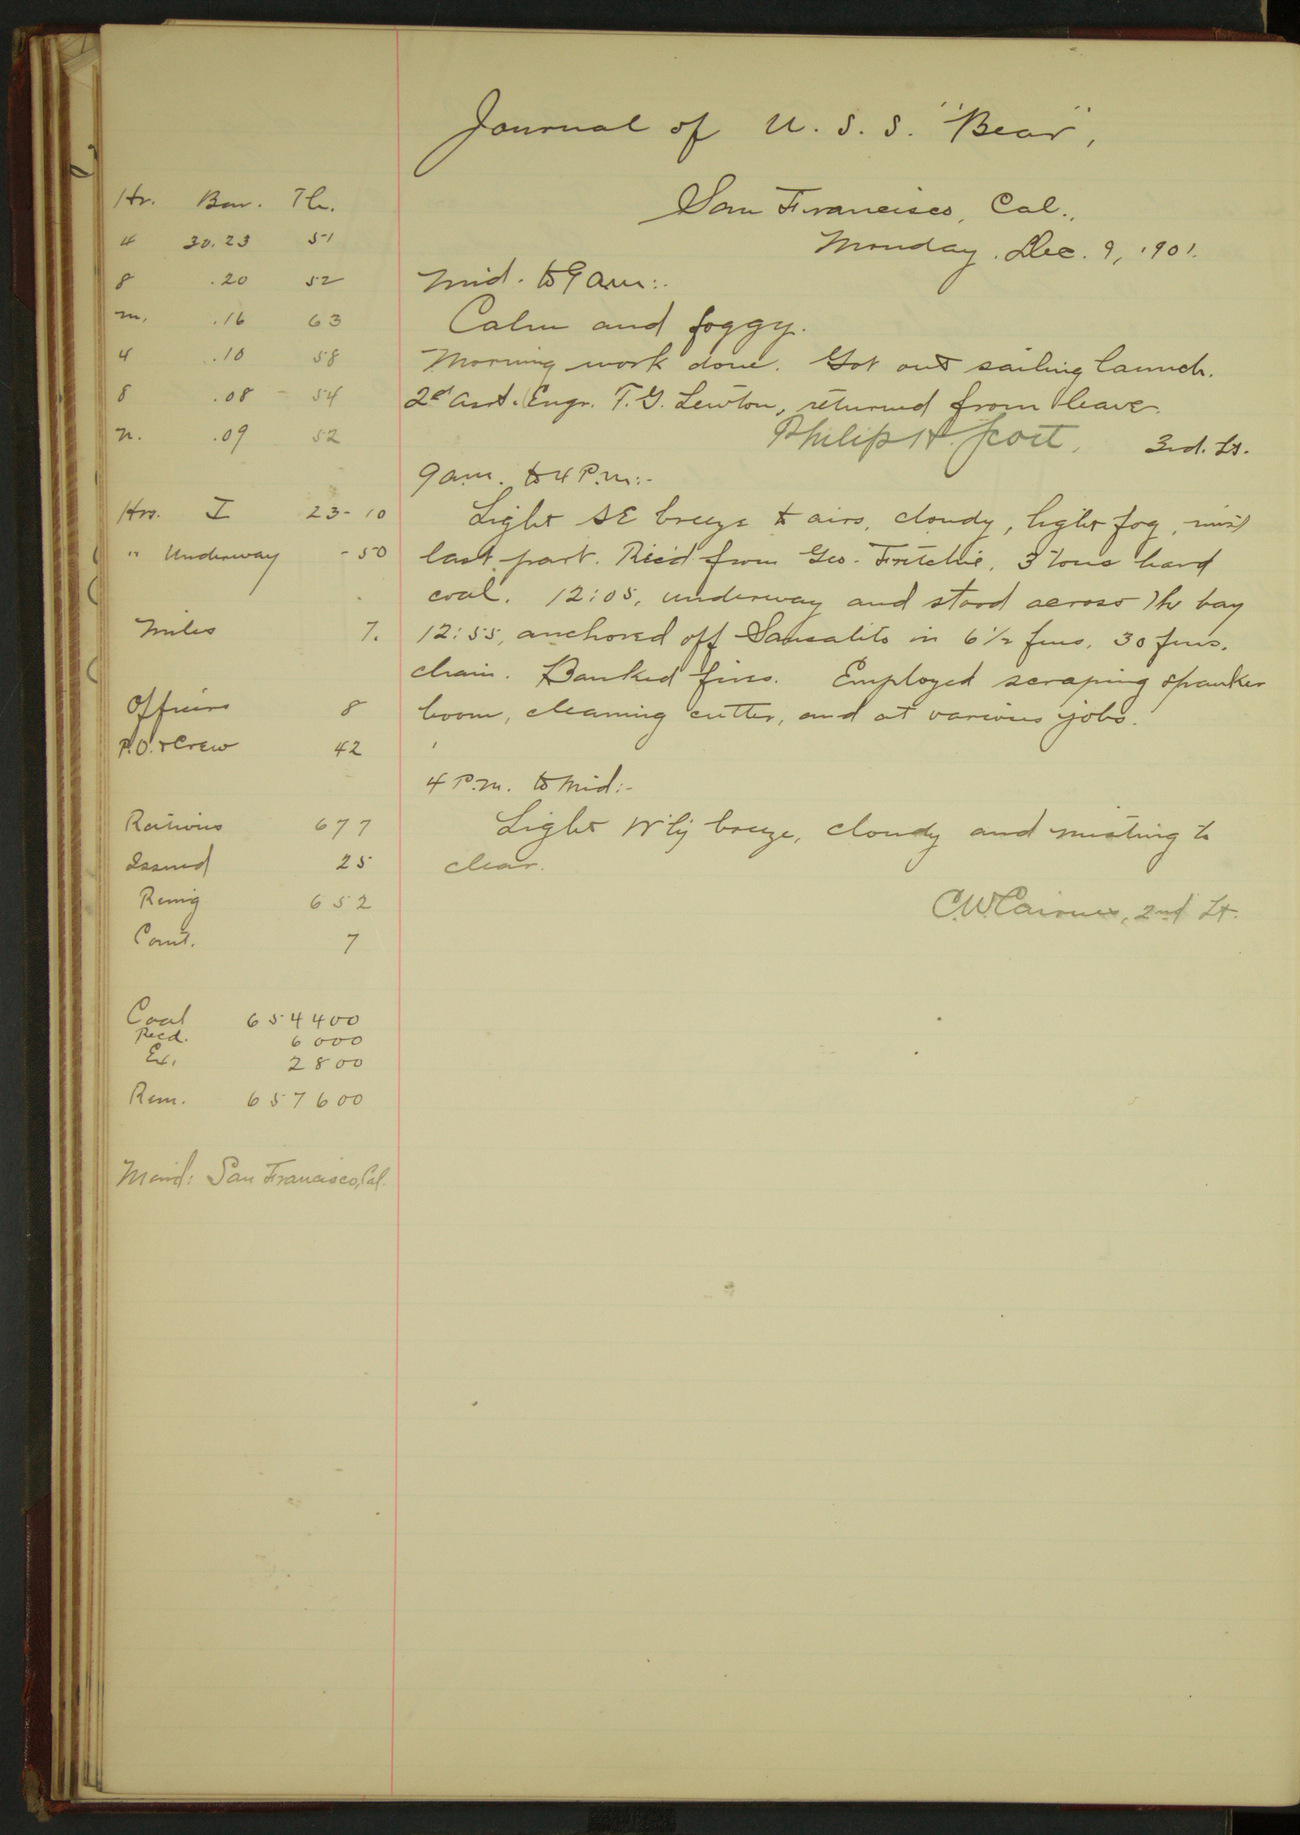 Journal of U. S. S. "Bear",
San Francisco, Cal.,
Monday. Dec. 9, 1901.
Hr. Bar. Th.
4 30.23 51
8 .20 52
m. .16 63
4 .10 58
8 .08 - 54
n. .09 52
Hrs. I 23-10
" Underway - 50
Miles 7.
Officers 8
P.O. & Crew 42
Rations 677
Issued 25
Reming 652
Com't. 7
Coal 654400
Recd. 6000
Ex. 2800
Rem. 657600
Maind: San Francisco, Cal.
Mid. to 9 am:-
Calm and foggy.
Morning work done. Got out sailing launch.
2d Asst. Engr. T. G. Lewton, returned from leave.
Philip H. Scott, 3rd. Lt.
9 a.m. to 4 P.m:-
Light SE breeze to airs, cloudy, light fog, mist
last part. Rec'd from Geo. Fritchie, 3 tons hard
coal. 12:05, underway and stood across the bay
12:55, anchored off Sausalito in 6 1/2 fms, 30 fms.
chain. Banked fires. Employed scraping spanker
boom, cleaning cutter, and at various jobs.
4 P.m. to mid:-
Light W'ly breeze, cloudy and misting to
clear.
C. W. Cairnes, 2nd Lt.